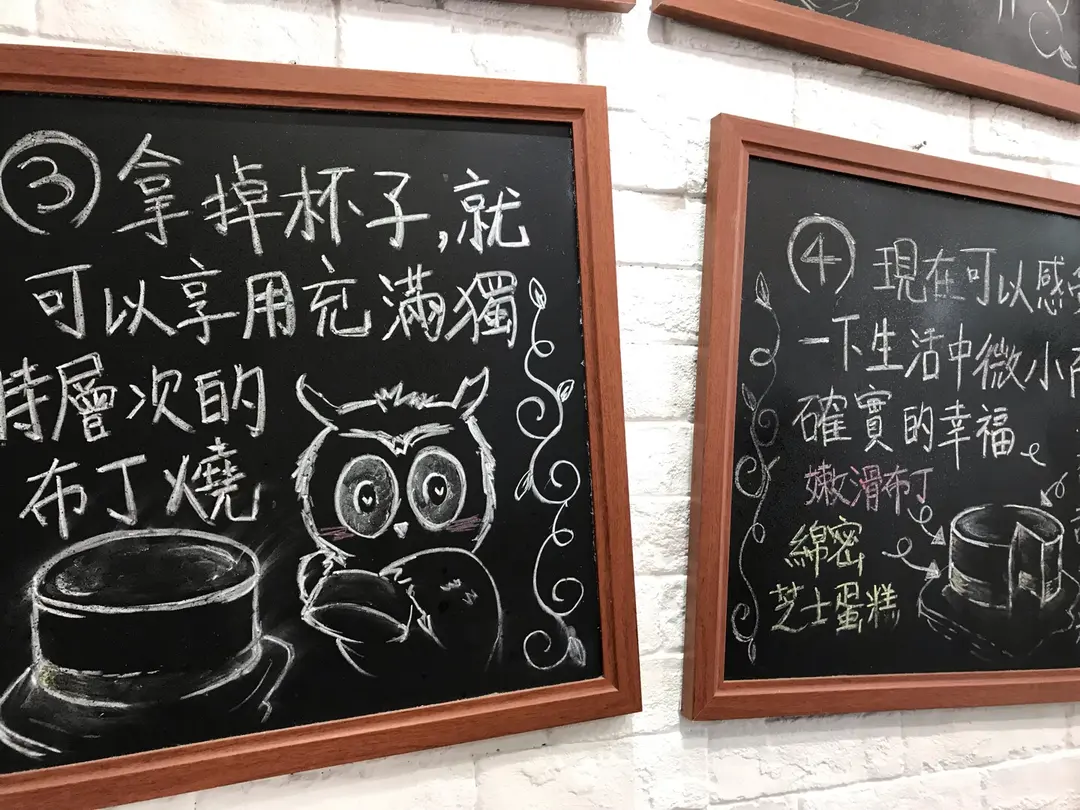 ③ 拿掉杯子,就
可以享用充滿獨
特層次的
布丁燒
④ 現在可以感
一下生活中微小
確實的幸福。
嫩滑布丁
綿密
芝士蛋糕